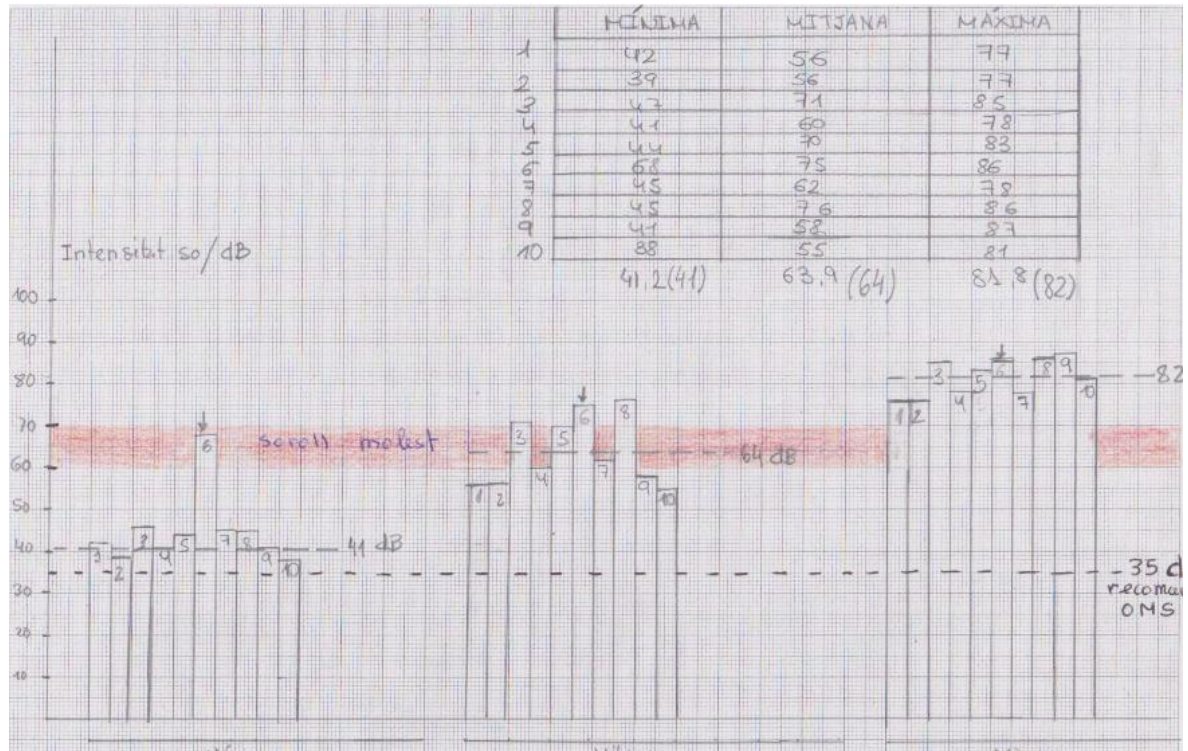 MÍNIMA MITJANA MÁXIMA
1 42 56 77
2 39 56 77
3 47 71 85
4 41 60 78
5 44 70 83
6 68 75 86
7 45 62 78
8 45 76 86
9 41 58 87
10 38 55 81
41,2(41) 63,9 (64) 81,8 (82)
Intensitat so/dB
100
90
80
70
60
50
40
30
20
10
soroll molest
1 2 3 4 5 6 7 8 9 10
41 dB
1 2 3 4 5 6 7 8 9 10
64 dB
1 2 3 4 5 6 7 8 9 10
82
35 d
recoma
OMS